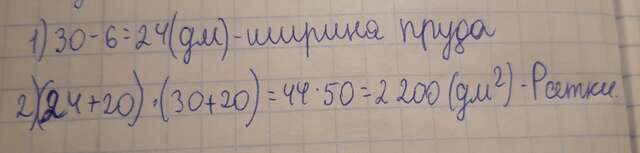 1) 30-6=24(дм)-ширина пруда
2)(24+20)·(30+20)=44·50=2200(дм²)-Pсетки.